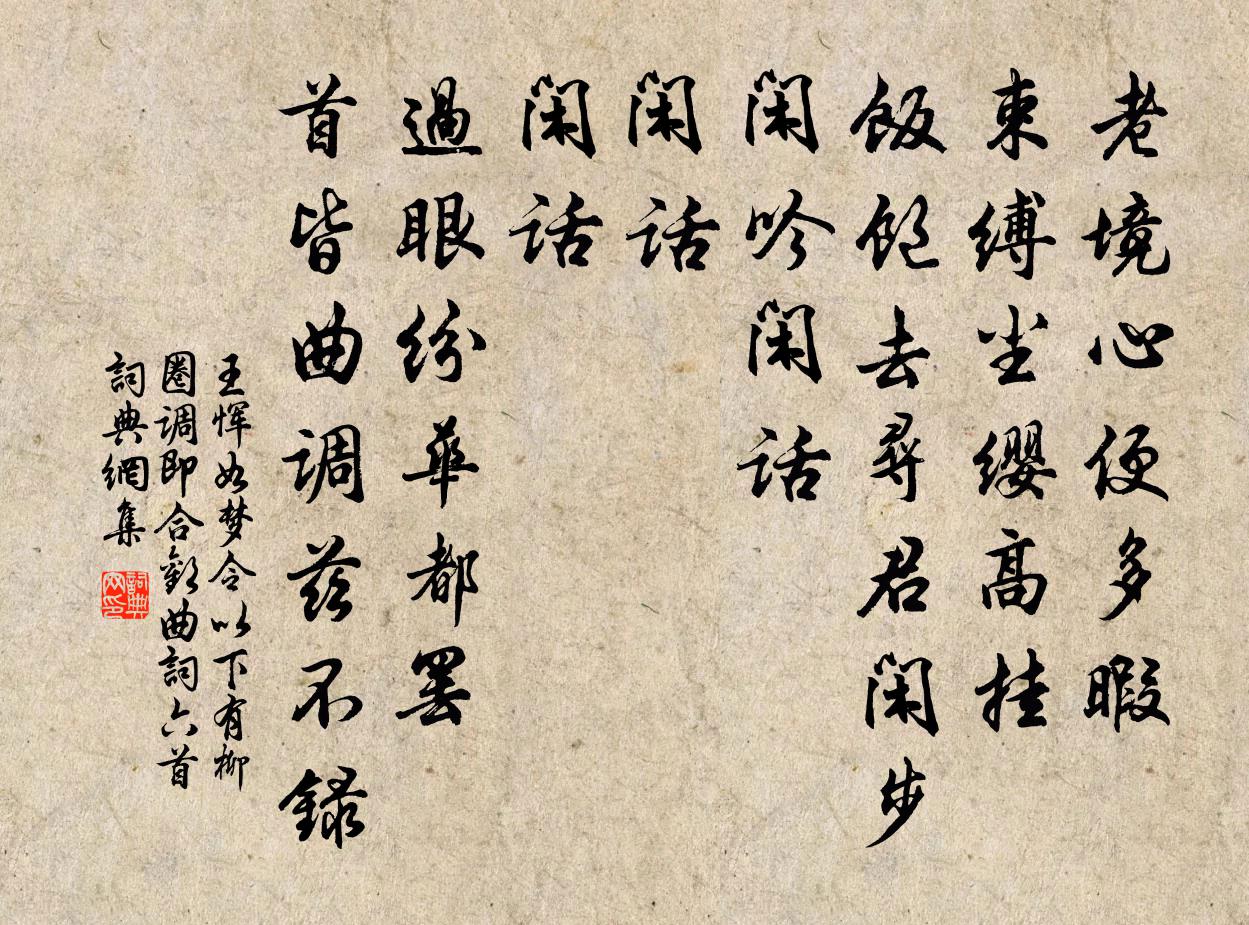 老境心便多暇
束缚尘缨高挂
饭饱去寻君闲步
闲吟闲话
闲话
闲话
過眼纷华都罢
首皆曲调兹不録
王恽如梦令以下有柳
圈调即合歡曲詞六首
詞典網集
詞典网印